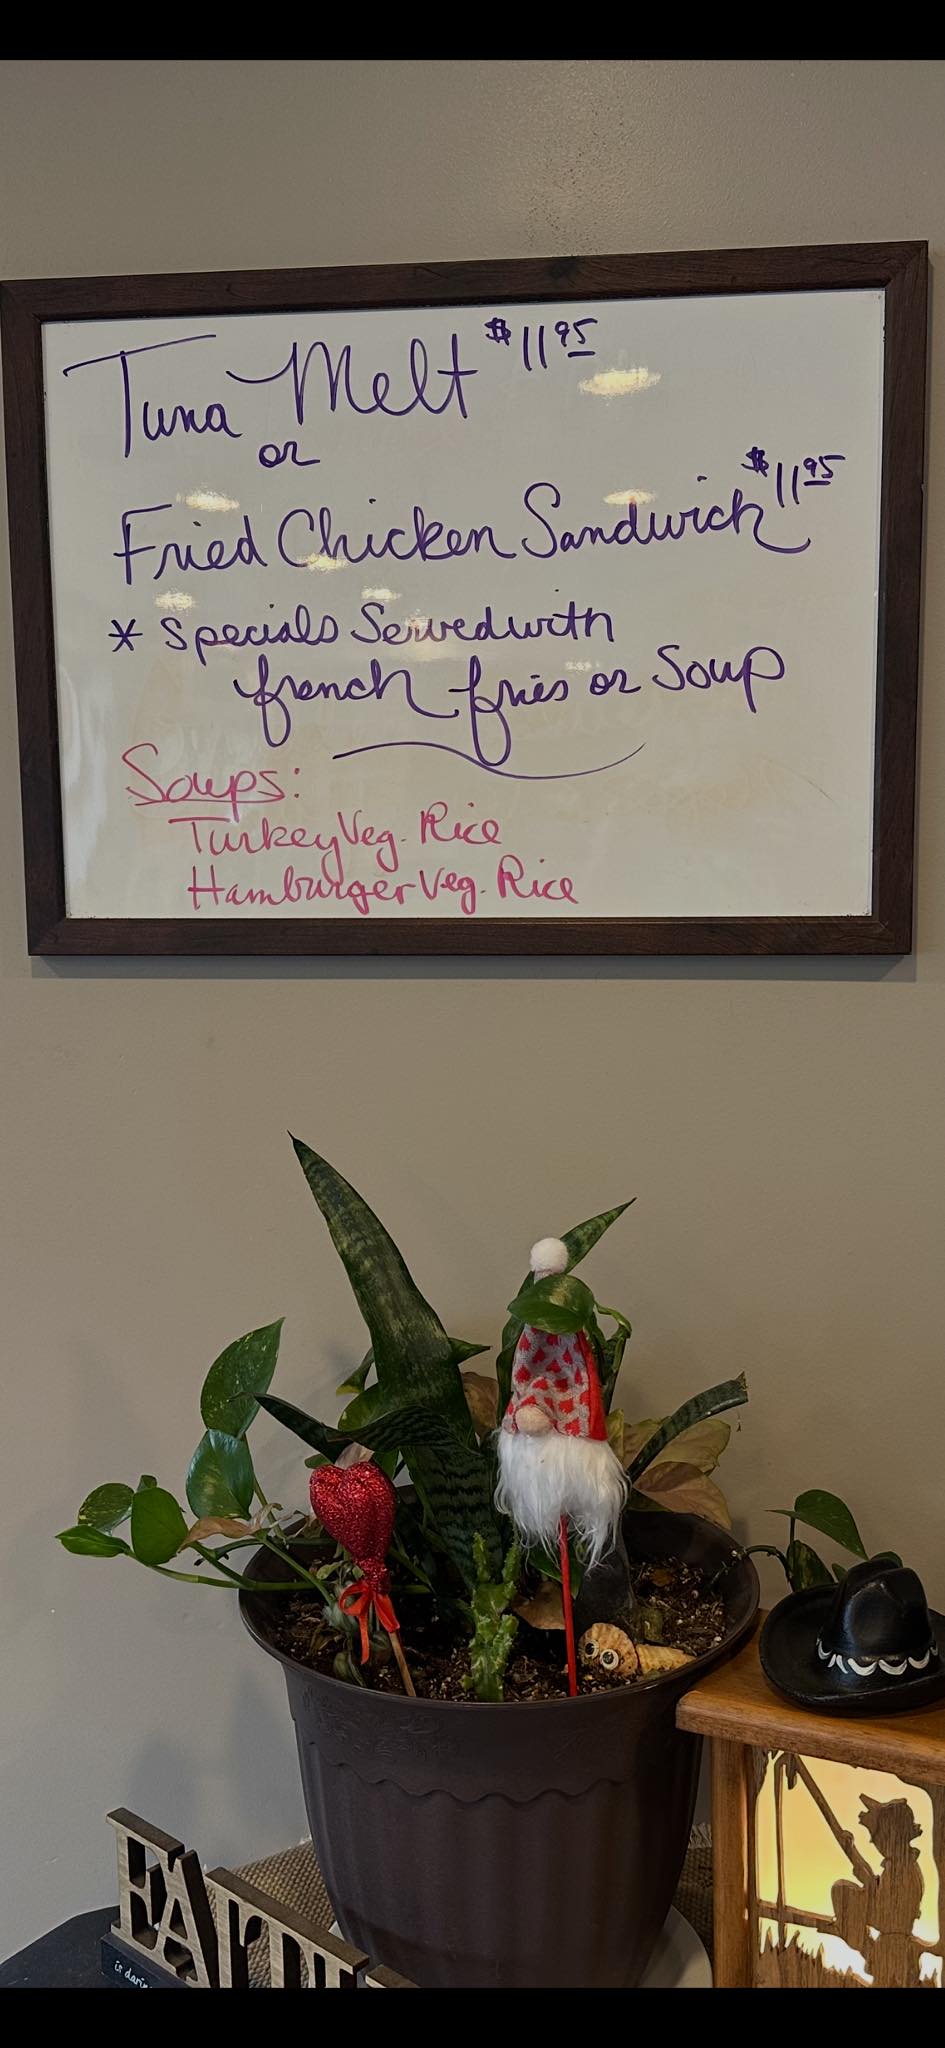 Tuna Melt $11.95
or
Fried Chicken Sandwich $11.95
* Specials Served with
french fries or Soup
Soups:
Turkey Veg. Rice
Hamburger Veg. Rice
FAITH
is daring